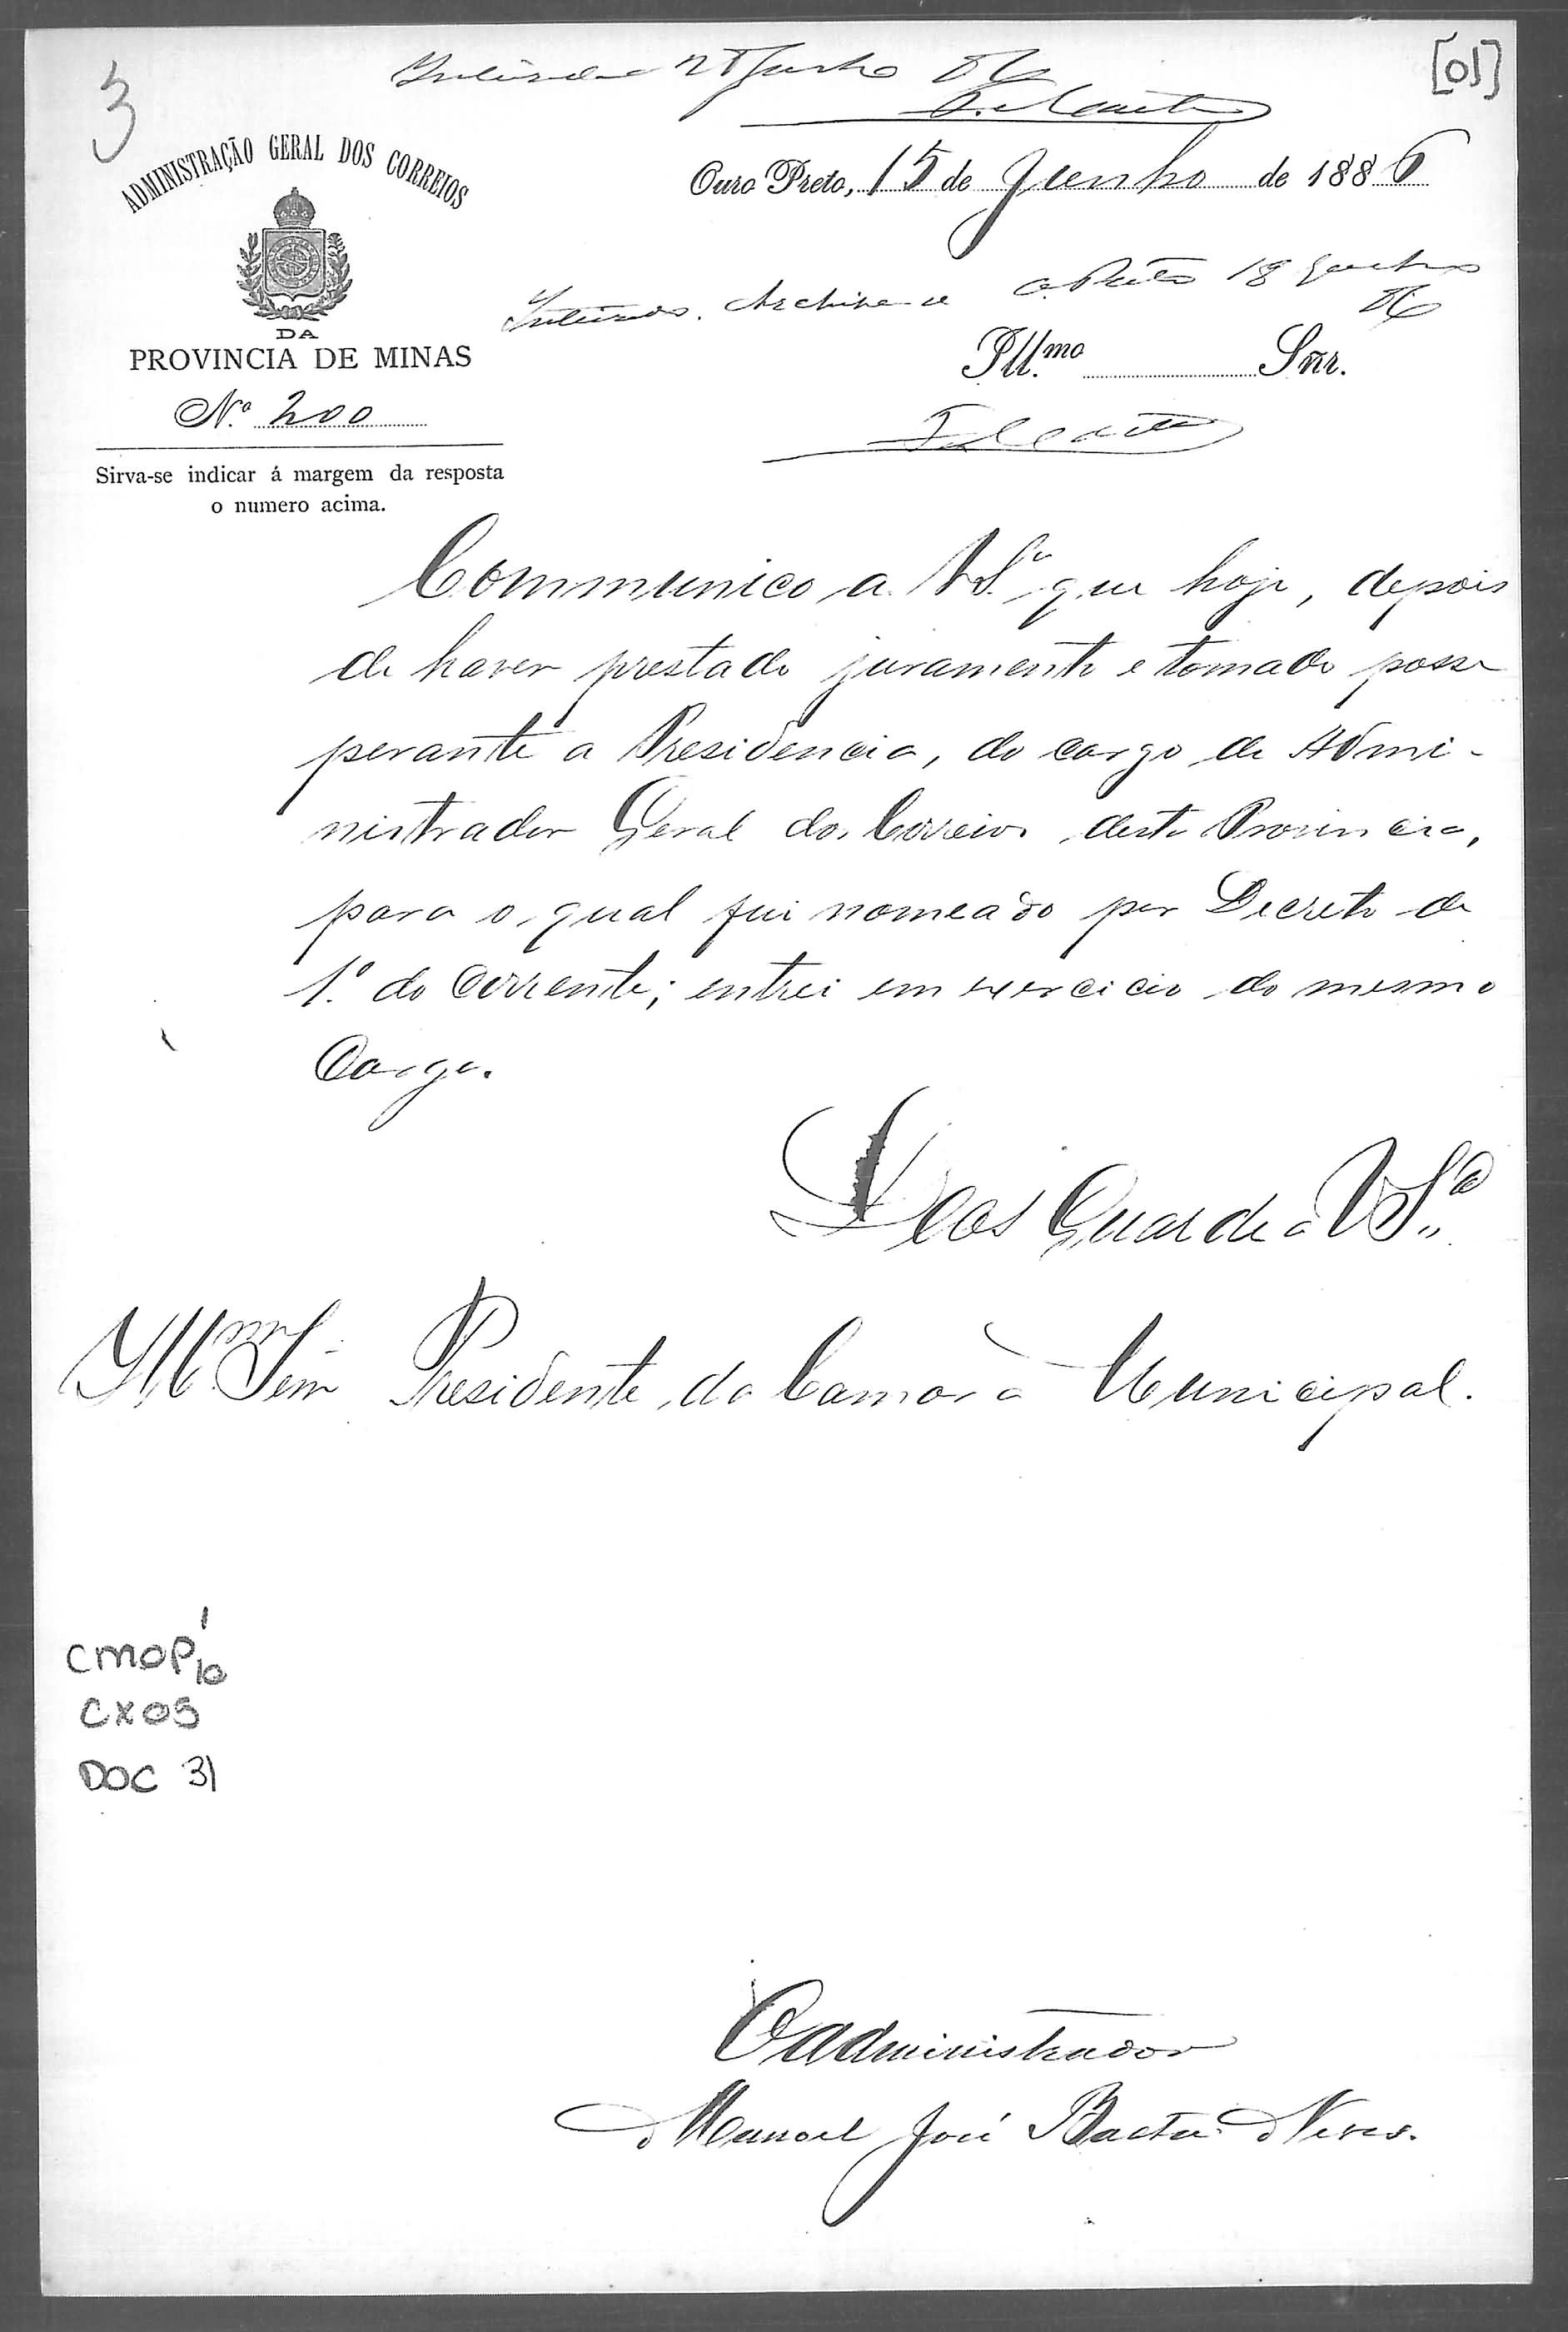 3
[01]
Junho 86
ADMINISTRAÇÃO GERAL DOS CORREIOS
DA
PROVINCIA DE MINAS
Nº 200
Sirva-se indicar á margem da resposta
o numero acima.
Ouro Preto, 15 de Junho de 1886
Inteirado. Archive-se O. Preto 18 Junho
86
Ill.mo Snr.
Communico a V.S.ª que hoje, depois
de haver prestado juramento e tomado posse
perante a Presidencia, do cargo de Admi-
nistrador Geral dos Correios desta Provincia,
para o qual fui nomeado por Decreto de
1.º do Corrente; entrei em exercicio do mesmo
Cargo.
Deos Guarde a V.S.ª
Ill.mo Snr. Presidente da Camara Municipal.
CMOP
CX 05
DOC 31
O Administrador
Manoel José Baeta Neves.